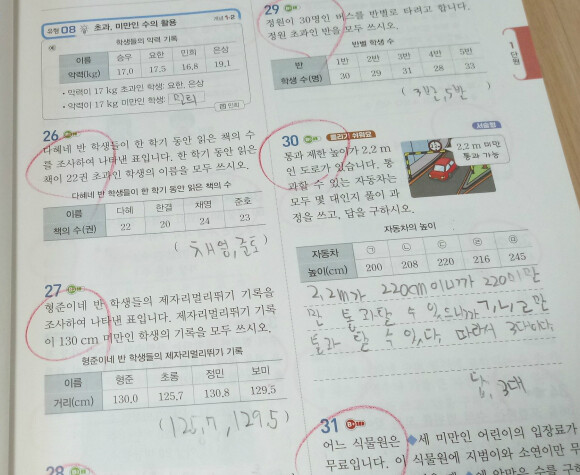 유형 08 초과, 미만인 수의 활용
개념 5
학생들의 악력 기록
이름 승우 요한 민희 은상
악력(kg) 17.0 17.5 16.8 19.1
• 악력이 17 kg 초과인 학생: 요한, 은상
• 악력이 17 kg 미만인 학생: 민희
답 민희
26
다혜네 반 학생들이 한 학기 동안 읽은 책의 수
를 조사하여 나타낸 표입니다. 한 학기 동안 읽은
책이 22권 초과인 학생의 이름을 모두 쓰시오.
다혜네 반 학생들이 한 학기 동안 읽은 책의 수
이름 다혜 한결 채영 준호
책의 수(권) 22 20 24 23
( 채영, 준호 )
27
형준이네 반 학생들의 제자리멀리뛰기 기록을
조사하여 나타낸 표입니다. 제자리멀리뛰기 기록
이 130 cm 미만인 학생의 기록을 모두 쓰시오.
형준이네 반 학생들의 제자리멀리뛰기 기록
이름 형준 초롱 정민 보미
거리(cm) 130.0 125.7 130.8 129.5
( 125.7, 129.5 )
28
29
정원이 30명인 버스를 반별로 타려고 합니다.
정원 초과인 반을 모두 쓰시오.
반별 학생 수
반 1반 2반 3반 4반 5반
학생 수(명) 30 29 31 28 33
( 3반, 5반 )
1
단원
30 틀리기 쉬워요 서술형
통과 제한 높이가 2.2 m
인 도로가 있습니다. 통
과할 수 있는 자동차는
모두 몇 대인지 풀이 과
정을 쓰고, 답을 구하시오.
2.2 m 미만
통과 가능
자동차의 높이
자동차 ㉠ ㉡ ㉢ ㉣ ㉤
높이(cm) 200 208 220 216 245
2.2m가 220cm이니까 220미만
만 통과할 수 있으니까 ㄱ, ㄴ, ㄹ만
통과 할 수 있다. 따라서 3대이다
답, 3대
31
어느 식물원은 세 미만인 어린이의 입장료가
무료입니다. 이 식물원에 지범이와 소연이만 무